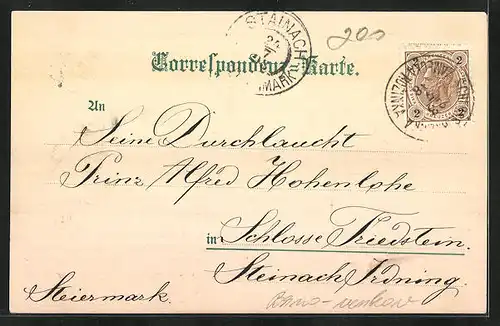 STAINACH
24
7
200
Correspondenz-Karte.
2
2 2
An
Seine Durchlaucht
Prinz Alfred Hohenlohe
in Schlosse Friedstein.
Steinach Irdning
Steiermark.